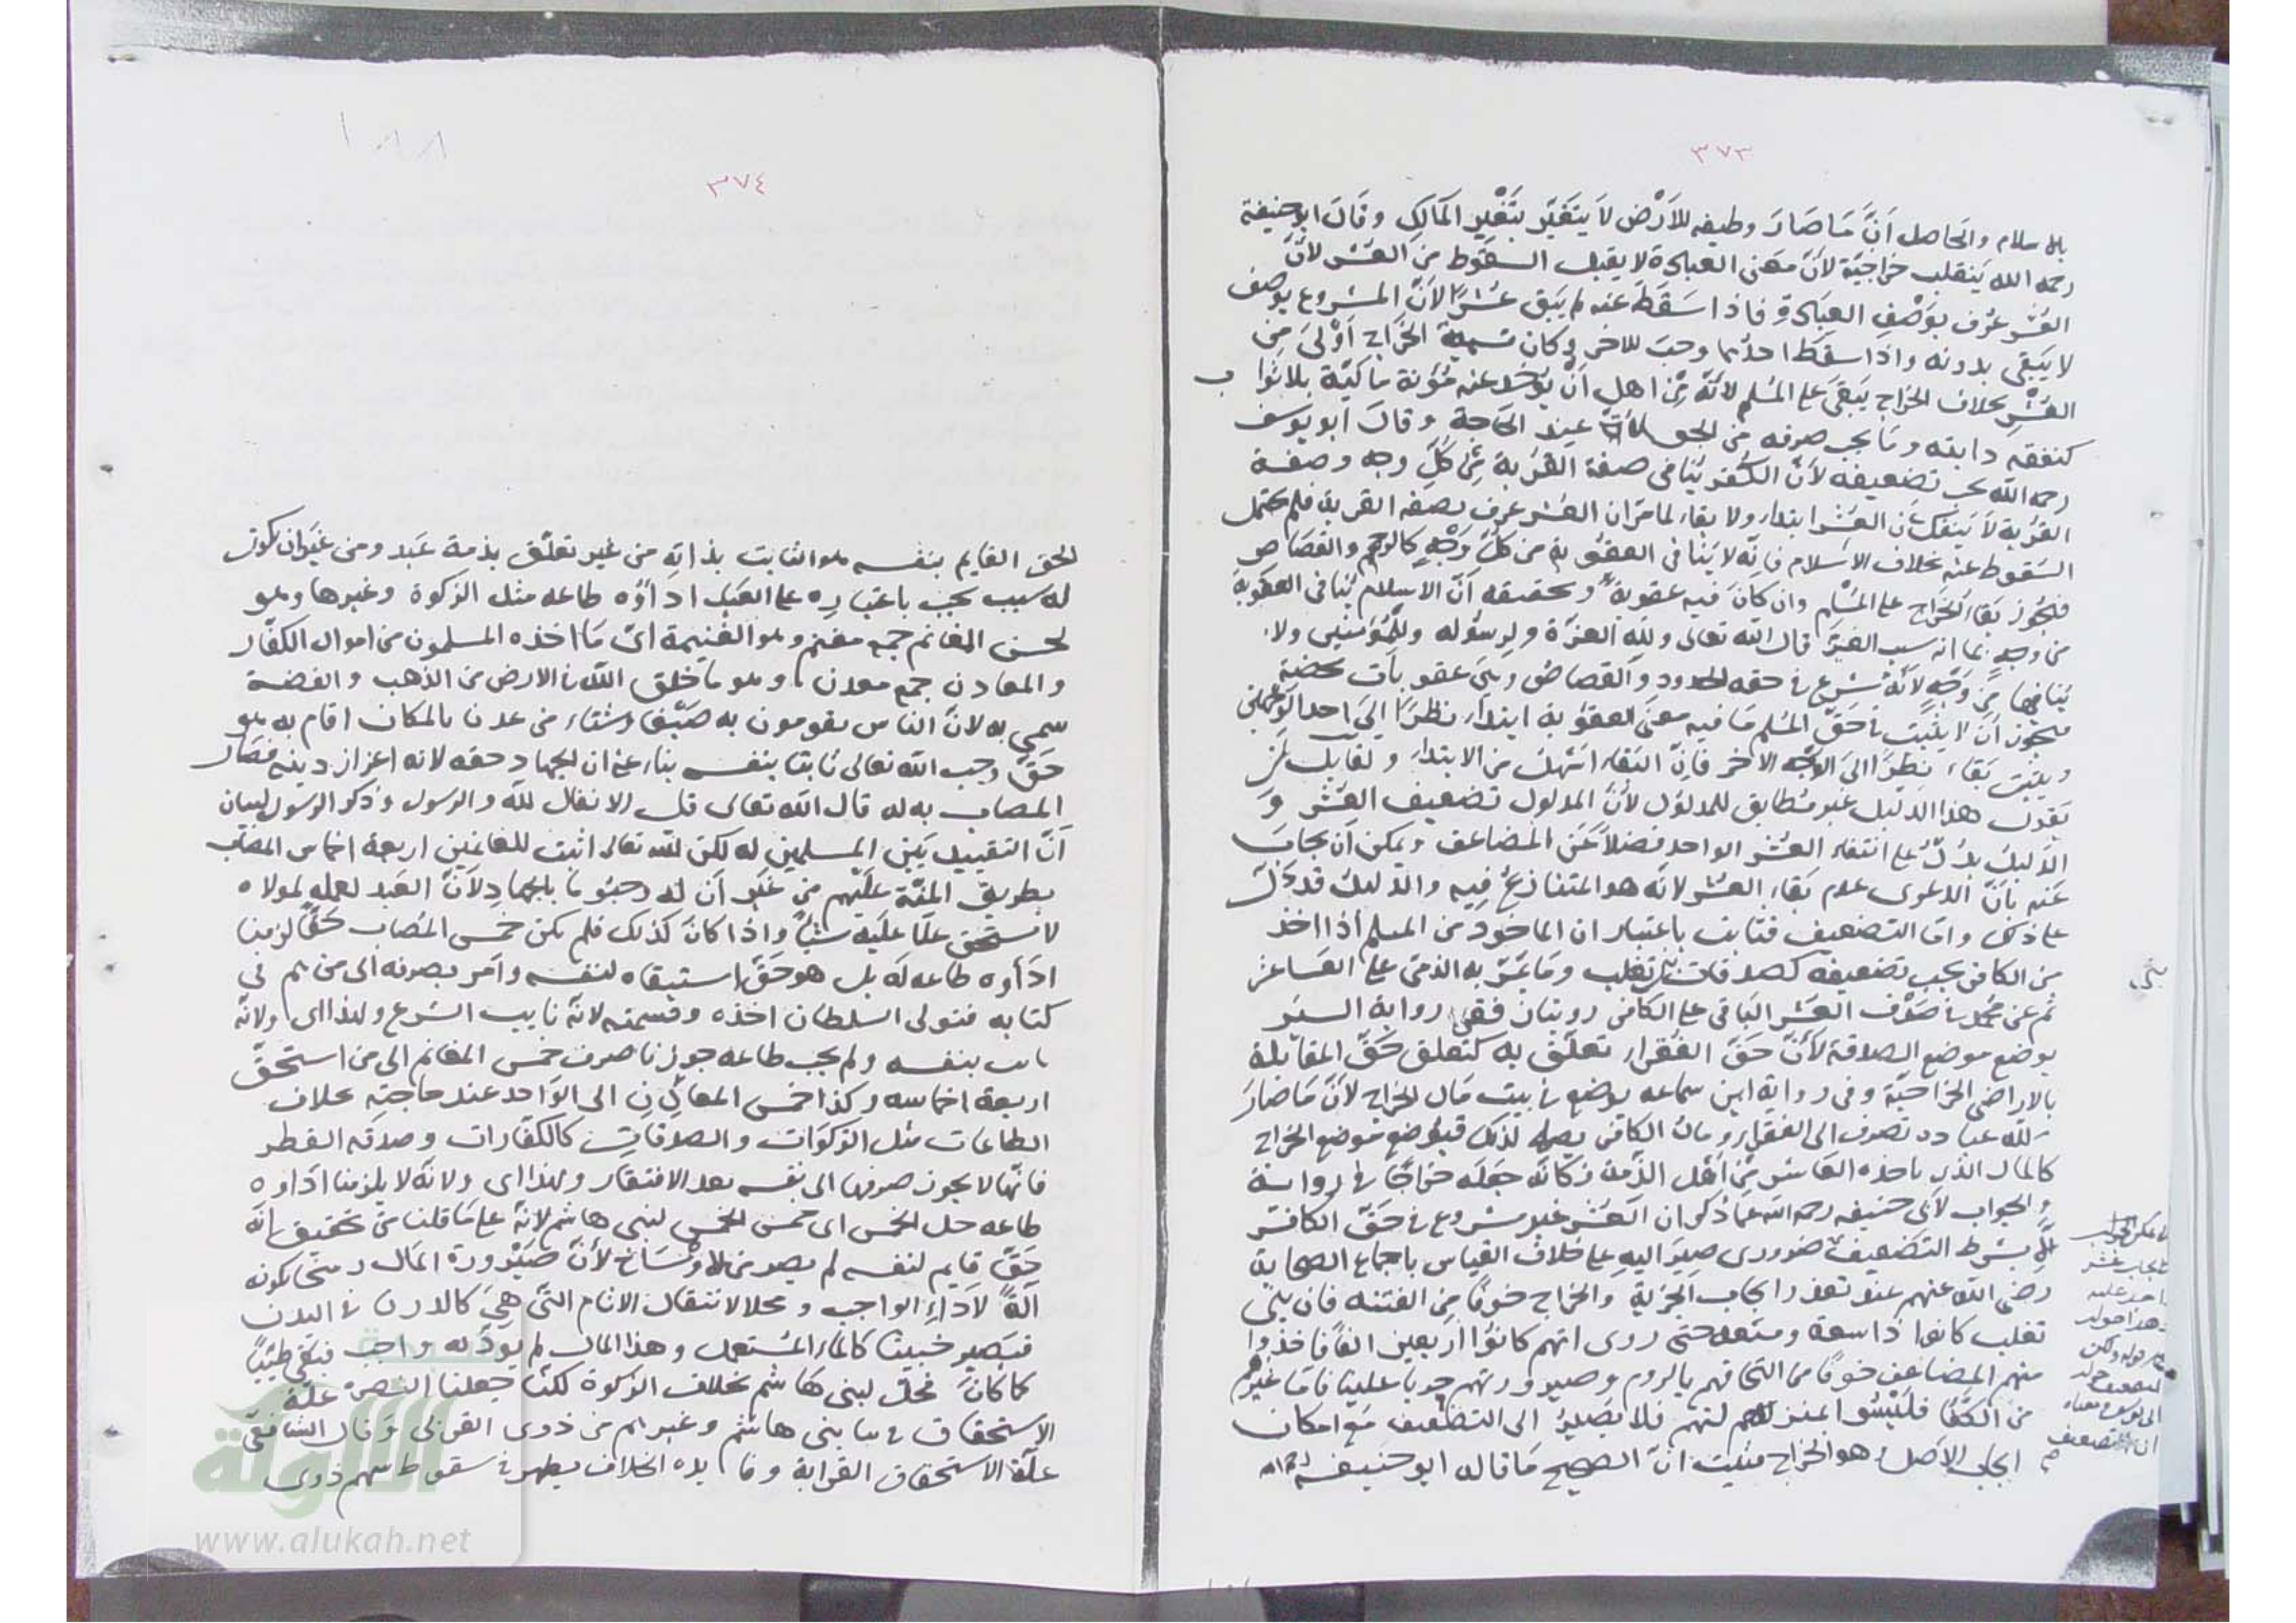 ٣٧٣
بالاسلام والحاصل اَنَّ مَا صَارَ وظيفه للأَرْض لاَ يتغَيَّر بتَغْيِر المَالِكِ وقَالَ ابو حنيفة
رحمه الله يَنقلب خراجيّة لأنّ معنى العبادة لا يقبل السقوط من العُشر لأنَّ
العُشر عُرف بوَصْفِ العِبَادة فاذا سَقَطَ عنه لم يَبق عُشرًا لأنّ المشروع بوصف
لا يَبْقى بدونه واذا سقط احدُهما وجبَ للاخر وكان تسمية الخَراج اَوْلىَ من
العُشْرِ بخلاف الخراج يَبقىَ على المُسْلم لأنَّه مِنْ اهل أنْ يؤخذ عنه مُؤنة ماكيّة بلا ثوا ب
كنفقه دابته وما يجب صرفه من الحق عند الحَاجة وقالَ ابو يوسف
رحمه الله يجب تضعيفه لأنّ الكُفر يُنافى صفة القُربة مِن كلّ وجه وصفة
القُربة لاَ يَنفك عَن العُشر ابتداء ولا بقاء لما مَرّ ان العُشر عرف بصفه القربة فلم يحتمل
السقوط عنه بخلاف الاسلام فانّه لا يُنافى العقوبة من كلّ وَجْهٍ كالرجم والقصاص
فيجُوز بقَاء الخَرَاج على المُسْلِم وان كانَ فيه عقوبةً وتحقيقه أنّ الاسلام يُنافى العقوبة
من وجهٍ بما انه سبب العِزّ قال الله تعالى وللّه العزّة ولرسُوله وللمُؤمنين ولا
يُنافيها من وَجْهٍ لأنّهُ شُرع فى حقه الحدود والقصاصُ وهىَ عقوبات محضة
فيجوز أنْ لا يثبُت فى حَقّ المُسْلم مَا فيه معنى العقُوبة ابتداء نظرًا إلىَ احد الوَجهين
ويثبت بَقاء نظرًا الىَ الوَجْه الاخر فانّ البقاء اسْهَل من الابتداء ولقايل أن
يقول هذا الدليل غير مُطابق للمدلُول لأنّ المدلول تضعيف العُشر وَ
الدّليلُ يدُلّ على انتفاء العُشر الواحد فضلاً عَن المضاعف ويمكن أن يجابَ
عَنه بأنّ الدعوى عدم بَقاء العُشر لانّه هو المتنازعُ فيه والدّليلُ قد دَلّ
على ذلك وامّا التضعيف فثابت باعتبار ان الماخوذ من المسلم اذا اخذ
من الكافر يجب تضعيفه كصدقات بنى تغلب ومَا يمرّ به الذمّى على العَاشر
ثم عن محمّد فى صَرْف العُشر البَاقى على الكافر روايتان ففى رواية السِيَر
يوضع موضع الصدقة لأنّ حَقّ الفُقراء تعلّق به كتعلق حَقّ المقاتلة
بالاراضى الخراجيّة وفى رواية ابن سماعه يوضع فى بيت مَال الخراج لأنّ مَا صَارَ
للّه عبادة تصرف الى الفقراء ومالُ الكافر لا يصلح لذلك فيُوضع مَوضع الخَراج
كالمال الذى ياخذه العَاشر مِنْ أهْل الذّمة فكانّه جَعلَه خراجًا فى رواية
والجواب لأبى حنيفه رحمه الله عما ذُكر ان العُشر غير مشروع فى حَقّ الكافر
إلاّ بشرط التضعيف ضرورى صيرَ اليهِ على خلاف القياس باجماع الصحابة
رضى الله عنهم عند تعذر ايجاب الجزية والخراج خوفًا من الفتنه فان بنى
تغلب كانوا ذا سعة ومنعه حتى روى انهم كانوُا اربعين الفًا فاخذوا
منهم المضاعف خوفًا من التحاقهم بالروم وصيرورتهم حربا علينا فامّا غيرهم
من الكُفّار فليْسُوا بمنزلتهم فلا يُصَارُ الى التضعيف مَع امكان
ايجاب الاَصلِ وهو الخراج فثبت انّ الصحيح مَا قاله ابو حنيفه
بنى
٣٧٤
١٨٨
الحق القايم بنفسه هو الثابت بذاتِه من غير تعلّق بذمة عَبد ومن غير ان يكون
له سبب يجب باعتبارِه على العَبْد اداؤُه طاعه مثل الزكوة وغيرها وهو
لخمس المغانم جمع مغنم وهو الغنيمة اىْ مَا اخذه المسلمون من اموال الكفّار
والمعادن جمع معدن وهو ما خلق اللّه فى الارض من الذهب والفضة
سمى به لانّ الناس يقومون به صَيْفًا وشتاء من عدن بالمكان اقام به هو
حَقّ وجب اللّه تعالى ثابتا بنفسه بناء على ان الجهاد حقه لانه اعزاز دينه فصار
المصاب به له قال الله تعالى قل الانفال للّه والرسول وذكر الرسول لبيان
أنّ التقييد بَيْن المسلمين له لكن اللّه تعالى اثبت للغانمين اربعة اخماس المصاب
بطريق المنّة علَيهم من غَير أنْ له وجبُوا بالجهادِ لأنّ العَبد لعمله لمولاه
لا يستحق علَى عَليه شيئًا واذا كانَ كذلك فلم يكن خمس المصاب حَقًّا لزمنا
ادَاؤه طاعه له بل هو حَقّ استبقاه لنفسه وامَر بصرفه الى من هم فى
كتابه فتولى السلطان اخذه وقسمته لانّه نايب الشرع ولهذا اى ولانّه
ثابت بنفسه ولم يجب طاعه جوّزنا صرف خمس المغانم الى من استحقّ
اربعة اخماسه وكذا خمس المعادِنِ الى الوَاحد عند حاجتِه بخلاف
الطاعات مثل الزكوَات والصدقاتِ كالكفّارات وصدقه الفطر
فانّها لا يجوز صرفها الى نفسه بعد الافتقار ولهذا اى ولانّه لا يلزمنا اداؤه
طاعه حل الخمس اى خمس الخمس لبنى هاشم لانّه على مَا قلنا من تحقيق انّه
حَقّ قايم لنفسه لم يصر من الاوْسَاخ لأنّ صَيْرورة المَال وسخا بكونه
آلةً لأدَاءِ الواجب ومحلا لانتقال الاثام التّى هِىَ كالدرن فى البدن
فيَصير خبيثا كالماء المُستعمل وهذا المال لم يؤدّ به واجب فبَقى طيّبًا
كما كانَ فحلّ لبنى هَاشم بخلاف الزكوة لكنّا جعلنا النصرة علّة
الاستحقاق فى بنى هاشم وغيرهم من ذوى القربى وقال الشافعىّ
علّة الاستحقاق القرابة وفايده الخلاف يظهر فى سقوط سهم ذوى
الألوكة
www.alukah.net